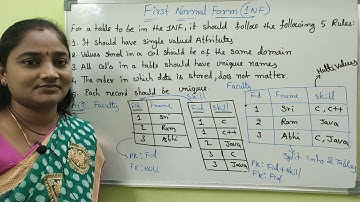 First Normal Form (1NF)
For a table to be in the 1NF, it should follow the following 5 Rules:
1. It should have single valued Attributes
2. Values stored in a col should be of the same domain
3. All col's in a table should have unique names
4. The order in which data is stored, does not matter.
5. Each record should be unique.
Multi values
Faculty
Faculty
Fid Fname
1 Sri
2 Ram
3 Abhi
PK: Fid
FK: NULL
Fid Skill
1 C
1 C++
2 Java
3 C
3 Java
Fid Fname Skill
1 Sri C, C++
2 Ram Java
3 Abhi C, Java
Split into 2 Tables
PK: Fid + Skill
FK: Fid